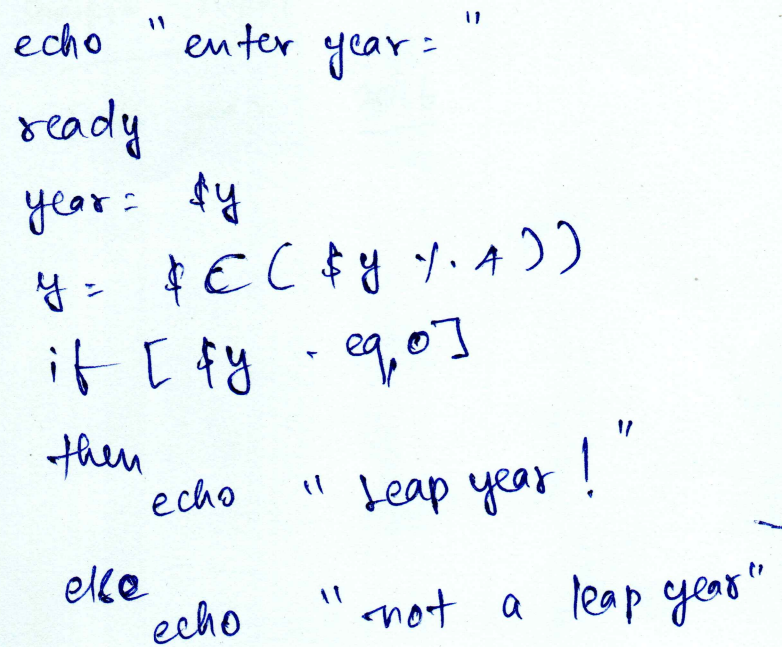 echo "enter year="
ready
year= $y
y= $(($y % 4))
if [ $y -eq 0]
then
echo "Leap year!"
else
echo "not a leap year"